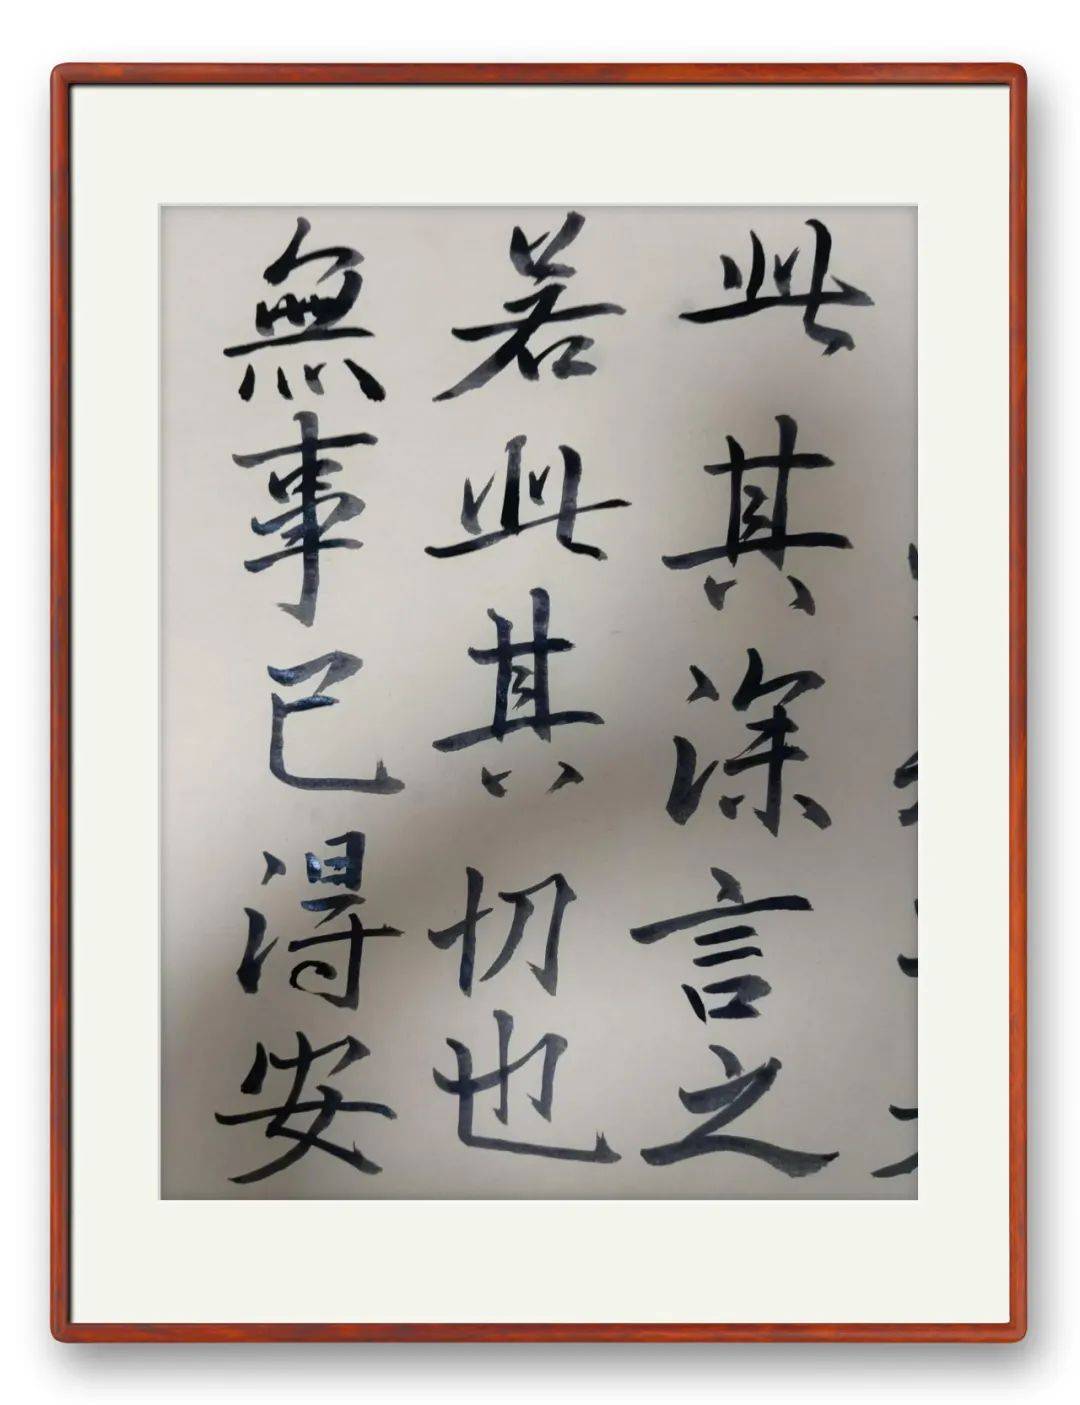 此其深言之
若此其切也
無事已得安